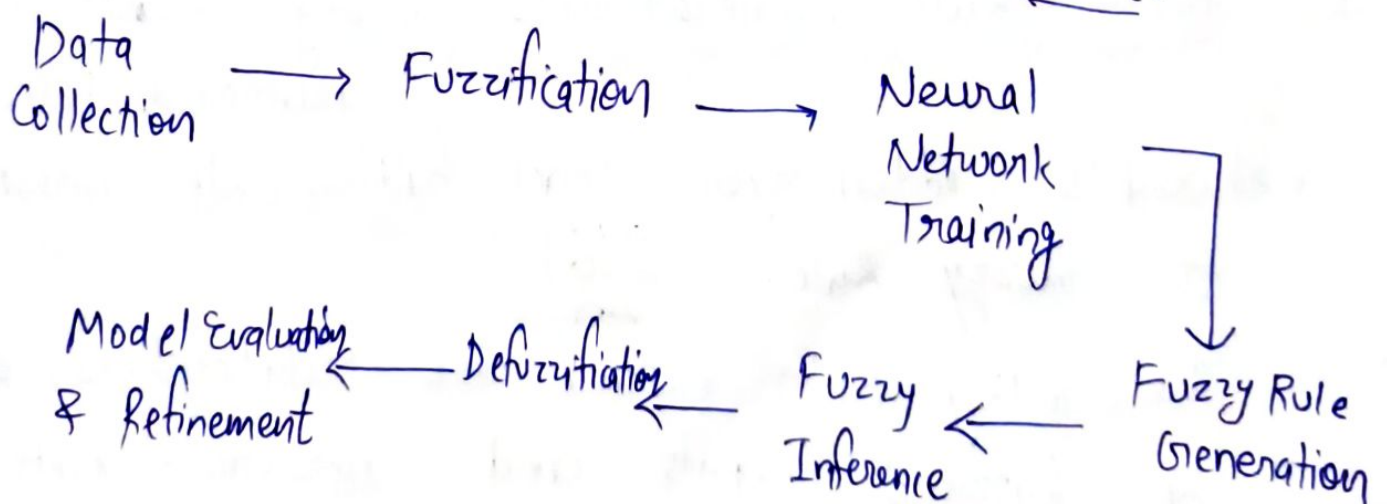 Data
Collection
Fuzzification
Neural
Network
Training
Fuzzy Rule
Generation
Fuzzy
Inference
Defuzzification
Model Evaluation
& Refinement